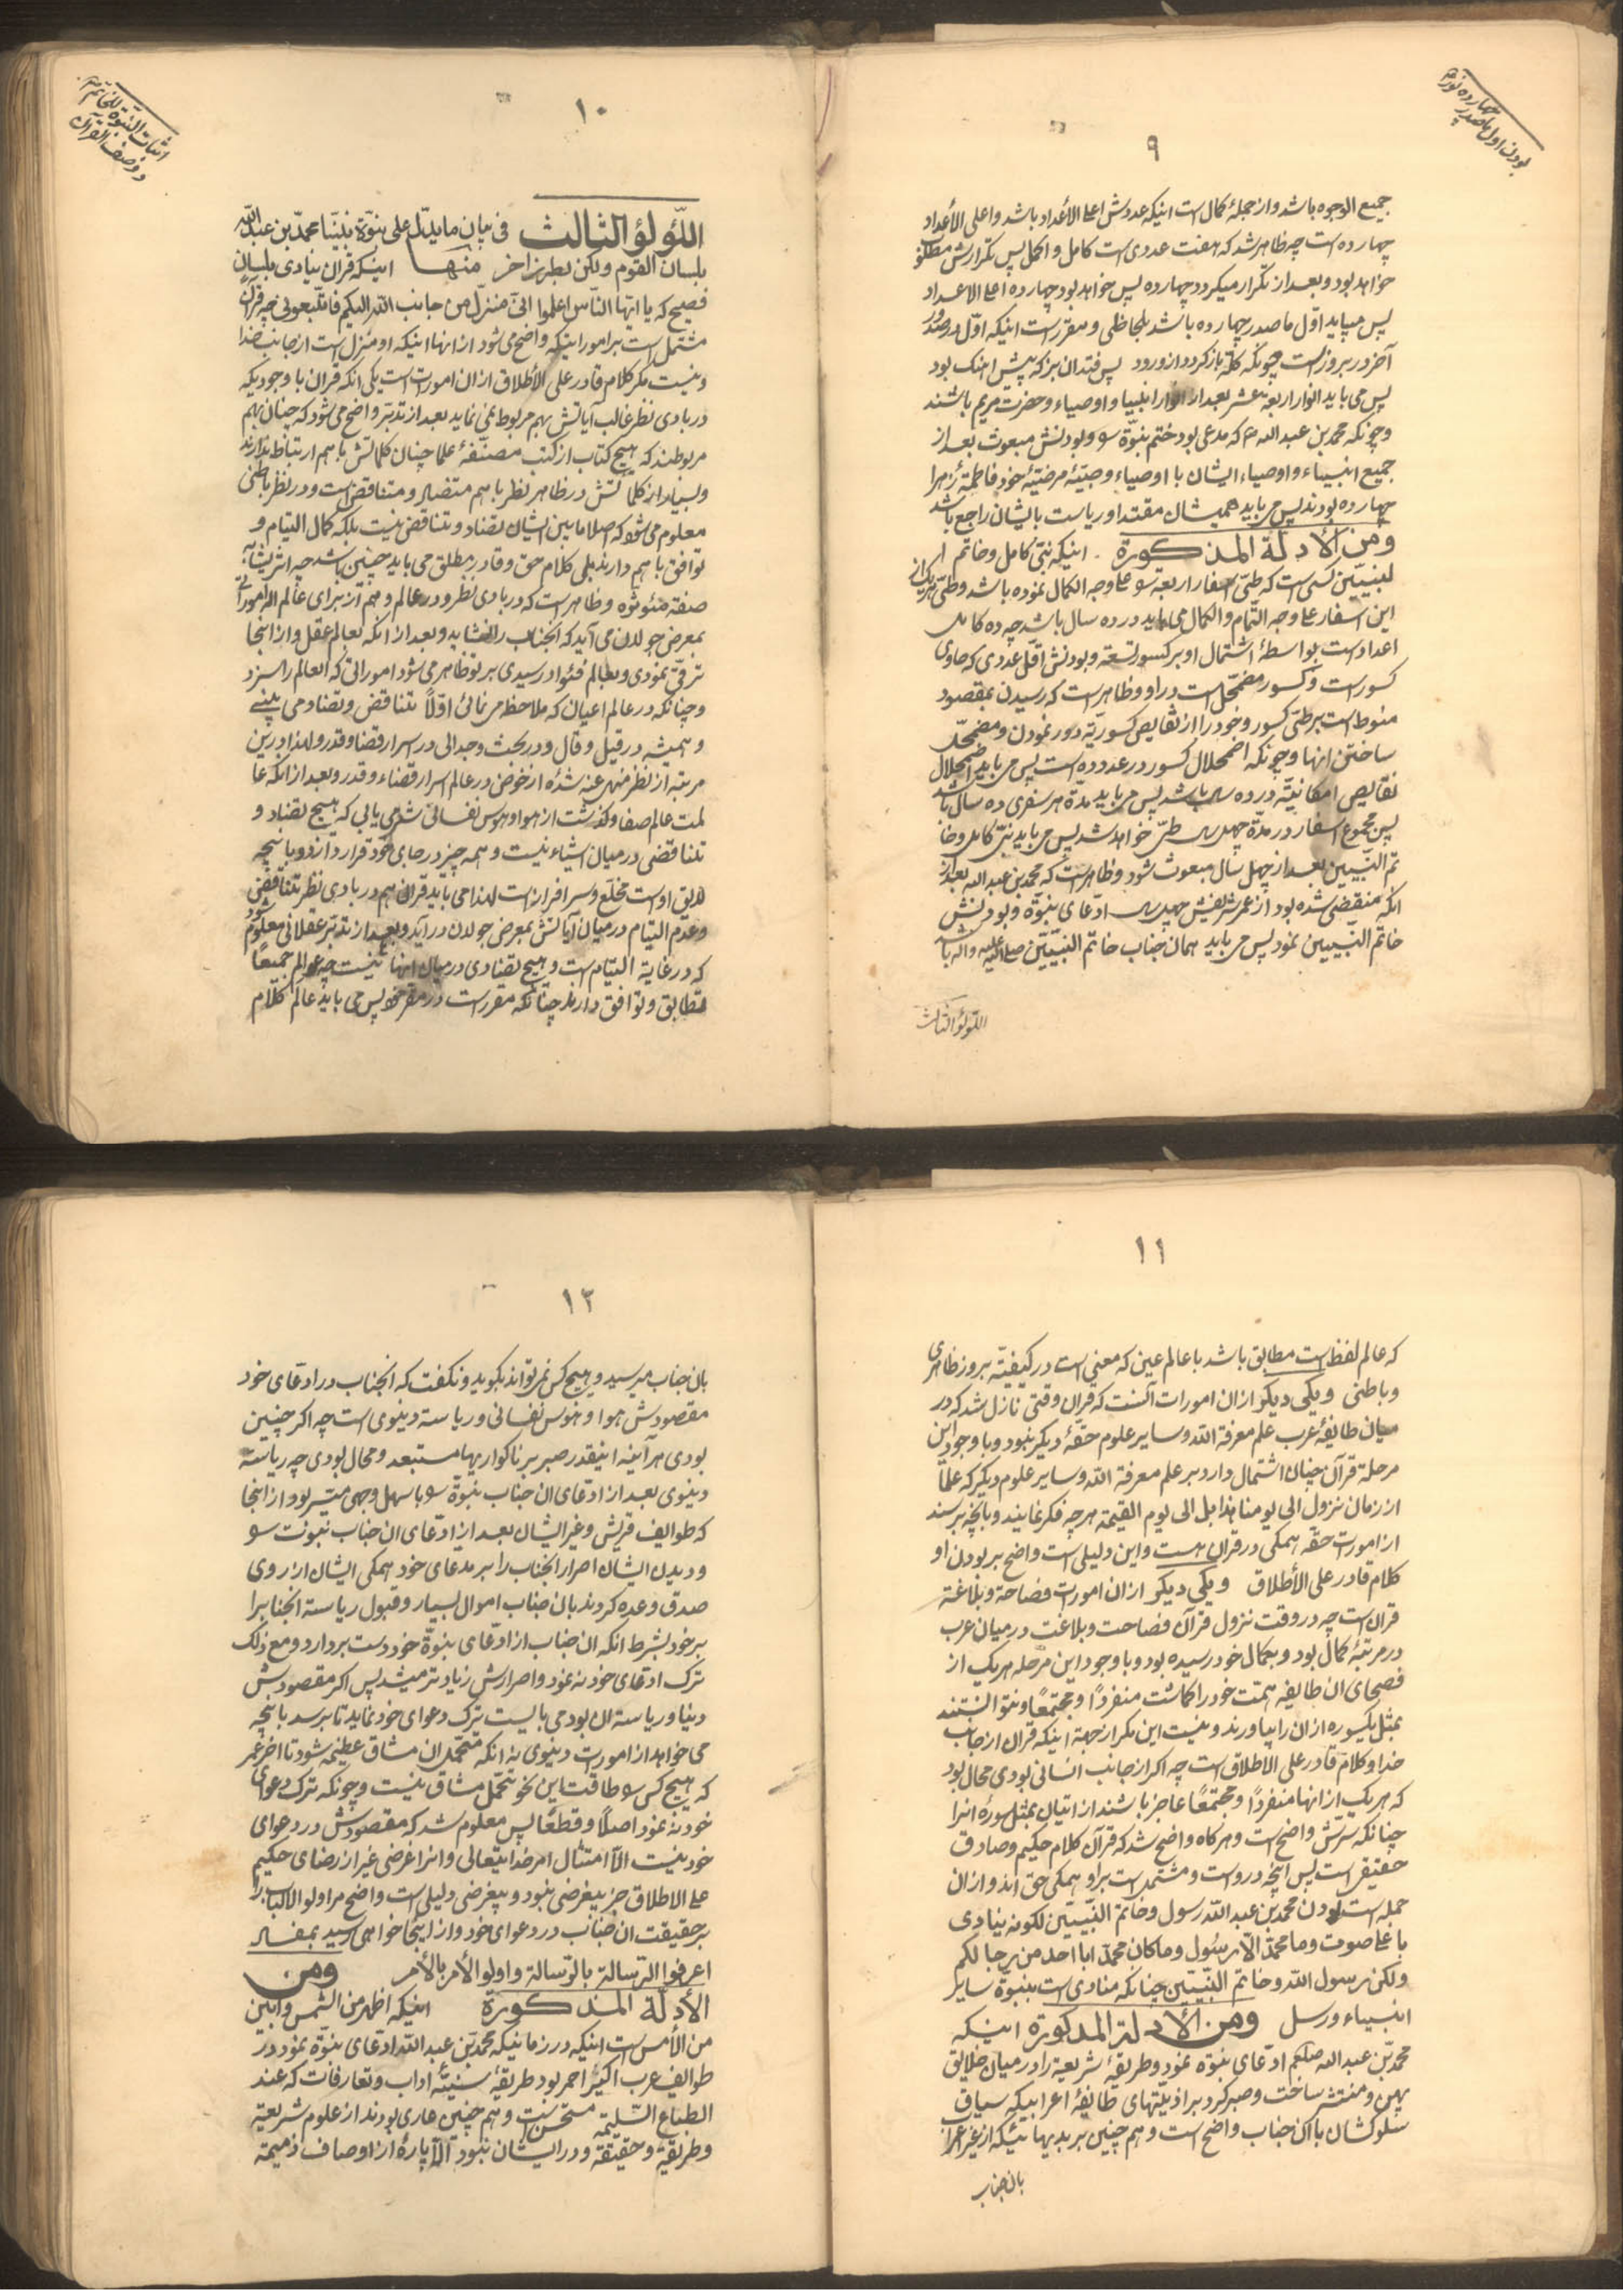 بودن اول ما صدر
چهارده نور
۹
جمیع الوجوه باشد و از جملهٔ کمال است اینکه عددش اعلی الأعداد باشد و اعلی الأعداد
چهارده است چه ظاهر شد که هفت عددی است کامل و اکمل پس تکرارش مطلوب
خواهد بود و بعد از تکرار میکردد چهارده پس خواهد بود چهارده اعلی الاعداد
پس میباید اوّل ما صدر چهارده باشد بلحاظی و مقرر است اینکه اوّل در صدور
آخر در بروز است چونکه کله باز کردد از ورود پس فتد ان بز که پیش اهنك بود
پس می باید انوار اربعة عشر بعد از انوار انبیا و اوصیاء و حضرت مریم باشند
و چونکه محمد بن عبد الله که مدعی بود ختم نبوّة را و بودنش مبعوث بعد از
جمیع انبیاء و اوصیاء ایشان با اوصیاء و صبیّهٔ مرضیّهٔ خود فاطمهٔ زهرا
چهارده بودند پس می باید همیشان مقتدا و ریاست بایشان راجع باشد
ومن الأدلة المذكورة اینکه نبیّ کامل و خاتم
لنبییّن کسی است که طیّ اسفار اربعه را علی وجه الکمال نموده باشد و طیّ هریک از
این اسفار علی وجه التّمام و الکمال می باید در ده سال باشد چه ده کامل
اعداد است بواسطهٔ اشتمال او بر کسور تسعه و بودنش اقلّ عددی که حاوی
کسور است و کسور مضمحّل است در او و ظاهر است که رسیدن بمقصود
منوط است بر طیّ کسور و خود را از نقایص کسوریّه دور نمودن و مضمحلّ
ساختن انها و چونکه اضمحلال کسور در عدد ده است پس می باید اضمحلال
نقایص امکانیّه در ده سال باشد پس می باید مدّة هر سفری ده سال باشد
پس مجموع اسفار در مدّة چهل سال طیّ خواهد شد پس می باید نبّی کامل و خا
تم النّبییّن بعد از چهل سال مبعوث شود و ظاهر است که محمد بن عبد الله بعد از
انکه منقضی شده بود از عمر شریفش چهل سال ادّعای نبوّة و بودنش
خاتم النّبییّن نمود پس می باید همان جناب خاتم النبیّیّن صلی الله علیه و اله باشد
اللؤلؤ الثالث
اثبات النبوّة للخاتم
و وصف القرآن
۱۰
اللّؤلؤ الثالث فی بیان ما یدلّ علی نبوّة نبیّنا محمّد بن عبد الله
بلسان القوم ولکن بطرز اخر منها اینکه قران ینادی بلسان
فصیح که یا ایّها النّاس اعلموا انّی منزّل من جانب الله الیکم فاتّبعونی چه قران
مشتمل است بر امور اینکه واضح می شود از انها اینکه او منزل است از جانب خدا
و نیست مکر کلام قادر علی الأطلاق از ان امورات است یکی انکه قران با وجودیکه
در بادی نظر غالب آیاتش بهم مربوط نمی نماید بعد از تدبّر واضح می شود که چنان بهم
مربوطند که هیچ کتاب از کتب مصنّفهٔ علما چنان کلماتش با هم ارتباط ندارند
و بسیار از کلماتش در ظاهر نظر با هم متضاد و متناقض است و در نظر باطنی
معلوم می شود که اصلا ما بین ایشان تضاد و تناقض نیست بلکه کمال التیام و
توافق با هم دارند بلی کلام حق و قادر مطلق می باید چنین باشد چه
صفة مئوثره و ظاهر است که در بادی نظر و در عالم وهم
بمعرض جولان می آید که انجناب را نشاید و بعد از انکه بعالم عقل و از انجا
ترقّی نمودی و بعالم فئواد رسیدی بر تو ظاهر می شود اموراتی که العالم را سزد
و چنانکه در عالم اعیان که ملاحظه می نمائی اوّلاً تناقض و تضاد می بینی
و همیشه در قیل و قال و در بحث و جدالی در اسرار قضا و قدر و لهذا درین
مرتبه از نظر منهی عنه شدهٔ از خوض در عالم اسرار قضاء و قدر و بعد از انکه عا
لمت عالم صفا و کذشت از هوا و هوس نفسانی شد می یابی که هیچ تضاد و
تناقضی در میان اشیاء نیست و همه چیز در جای خود قرار دارد و بانچه
لایق او است مخلّع و سر افراز است لهذا می باید قران هم در بادی نظر تناقض
و عدم التیام در میان آیاتش بمعرض جولان در آید و بعد از تدبّر عقلانی معلوم شود
که در غایة التیام است و هیچ تضادی در میان انها نیست چه عوالم جمیعاً
متطابق و توافق دارند چنانکه مقرر است در مقرّه پس می باید عالم کلام
۱۱
که عالم لفظ است مطابق باشد با عالم عین که معنی است در کیفیّة بروز ظاهری
و باطنی و یکی دیکر از ان امورات آنست که قران وقتی نازل شد که در
میان طایفهٔ عرب علم معرفة الله و سایر علوم حقّهٔ دیکر نبود و با وجود این
مرحله قرآن چنان اشتمال دارد بر علم معرفة الله و سایر علوم دیکر که علما
از زمان نزول الی یومنا هذا بل الی یوم القیمة هر چه فکر نمایند و بانچه برسند
از امورات حقّه همکی در قران هست و این دلیلی است واضح بر بودن او
کلام قادر علی الأطلاق و یکی دیکر از ان امورات فصاحة و بلاغة
قران است چه در وقت نزول قرآن فصاحت و بلاغت در میان عرب
در مرتبهٔ کمال بود و بکمال خود رسیده بود و با وجود این مرحله هریک از
فصحای ان طایفه همت خود را کماشت منفرداً و مجتمعاً و نتوانستند
بمثل یکسوره از ان را بیاورند و نیست این مکر از جهة اینکه قران از جانب
خدا و کلام قادر علی الاطلاق است چه اکر از جانب انسانی بودی محال بود
که هریک از انها منفرداً و مجتمعاً عاجز باشند از اتیان بمثل سورهٔ انرا
چنانکه سرّش واضح است و هر کاه واضح شد که قرآن کلام حکیم و صادق
حقیقی است پس انچه در و است و مشتمل است بر او همکی حق اند و از ان
جمله است بودن محمد بن عبد الله رسول و خاتم النّبییّن لکونه ینادی
باعلی صوت و ما محمّد الّا رسول و ما کان محمّد ابا احد من رجالکم
و لکن رسول الله و خاتم النّبییّن چنانکه منادی است بنبوّة سایر
انبیاء و رسل ومن الأدلة المذکورة اینکه
محمّد بن عبد الله صلعم ادّعای نبوّة نمود و طریقهٔ شریعة را در میان خلایق
پهن و منتشر ساخت و صبر کرد بر اذیّتهای طایفهٔ اعراب بیکه سیاق
سلوکشان با ان جناب واضح است و هم چنین بر بدیهائیکه از غیر اعراب
بان جناب
۱۲
بان جناب میرسید و هیچ کس نمی تواند بکوید و نکفت که انجناب در ادعای خود
مقصودش هوا و هوس نفسانی و ریاسة دنیوی است چه اکر چنین
بودی هر آینه اینقدر صبر بر ناکواریها مستبعد و محال بودی چه ریاسة
دنیوی بعد از ادعای ان جناب نبوّة را باسهل وجهی میّسر بود از انجا
که طوایف قریش و غیر ایشان بعد از ادّعای ان جناب نبوت را
و دیدن ایشان اصرار انجناب را بر مدعای خود همکی ایشان از روی
صدق وعده کردند بان جناب اموال بسیار و قبول ریاسة انجنابرا
بر خود بشرط انکه ان جناب از ادّعای نبوّة خود دست بردارد و مع ذلك
ترک ادعای خود نه نمود و اصرارش زیادتر میشد پس اکر مقصودش
دنیا و ریاسة ان بود می بایست ترک دعوای خود نماید تا برسد بانچه
می خواهد از امورات دنیوی نه انکه متحمّل ان مشاق عظیمه شود تا اخر عمر
که هیچ کس را طاقت این نحو تحمّل مشاق نیست و چونکه ترک دعوای
خود نه نمود اصلاً و قطعاً پس معلوم شد که مقصودش در دعوای
خود نیست الّا امتثال امر خدایتعالی و انرا غرضی غیر از رضای حکیم
علی الاطلاق جز بیغرضی نبود و بیغرضی دلیلی است واضح مر اولو الالباب را
بر حقیقت ان جناب در دعوای خود و از اینجا خواهی رسید بمفاد
اعرفوا الرّسالة بالرّسالة و اولو الأمر بالأمر ومن
الأدلّة المذکورة اینکه اظهر من الشمس و ابین
من الأمس است اینکه در زمانیکه محمّد بن عبد الله ادعای نبوّة نمود در
طوایف عرب اکثیر احمر بود طریقهٔ سنیّه اداب و تعارفات که عند
الطباع السّلیمة مستحسن است و هم چنین عاری بودند از علوم شریعة
و طریقة و حقیقة و در ایشان نبود الّا پارهٔ از اوصاف ذمیمة